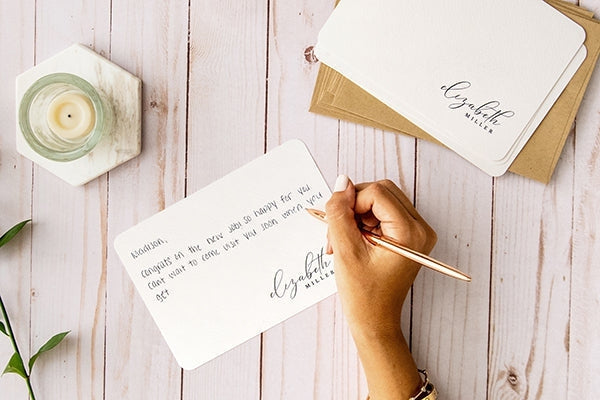 Madison,
congrats on the new job! so happy for you
cant wait to come visit you soon when you
get
elizabeth
MILLER
elizabeth
MILLER